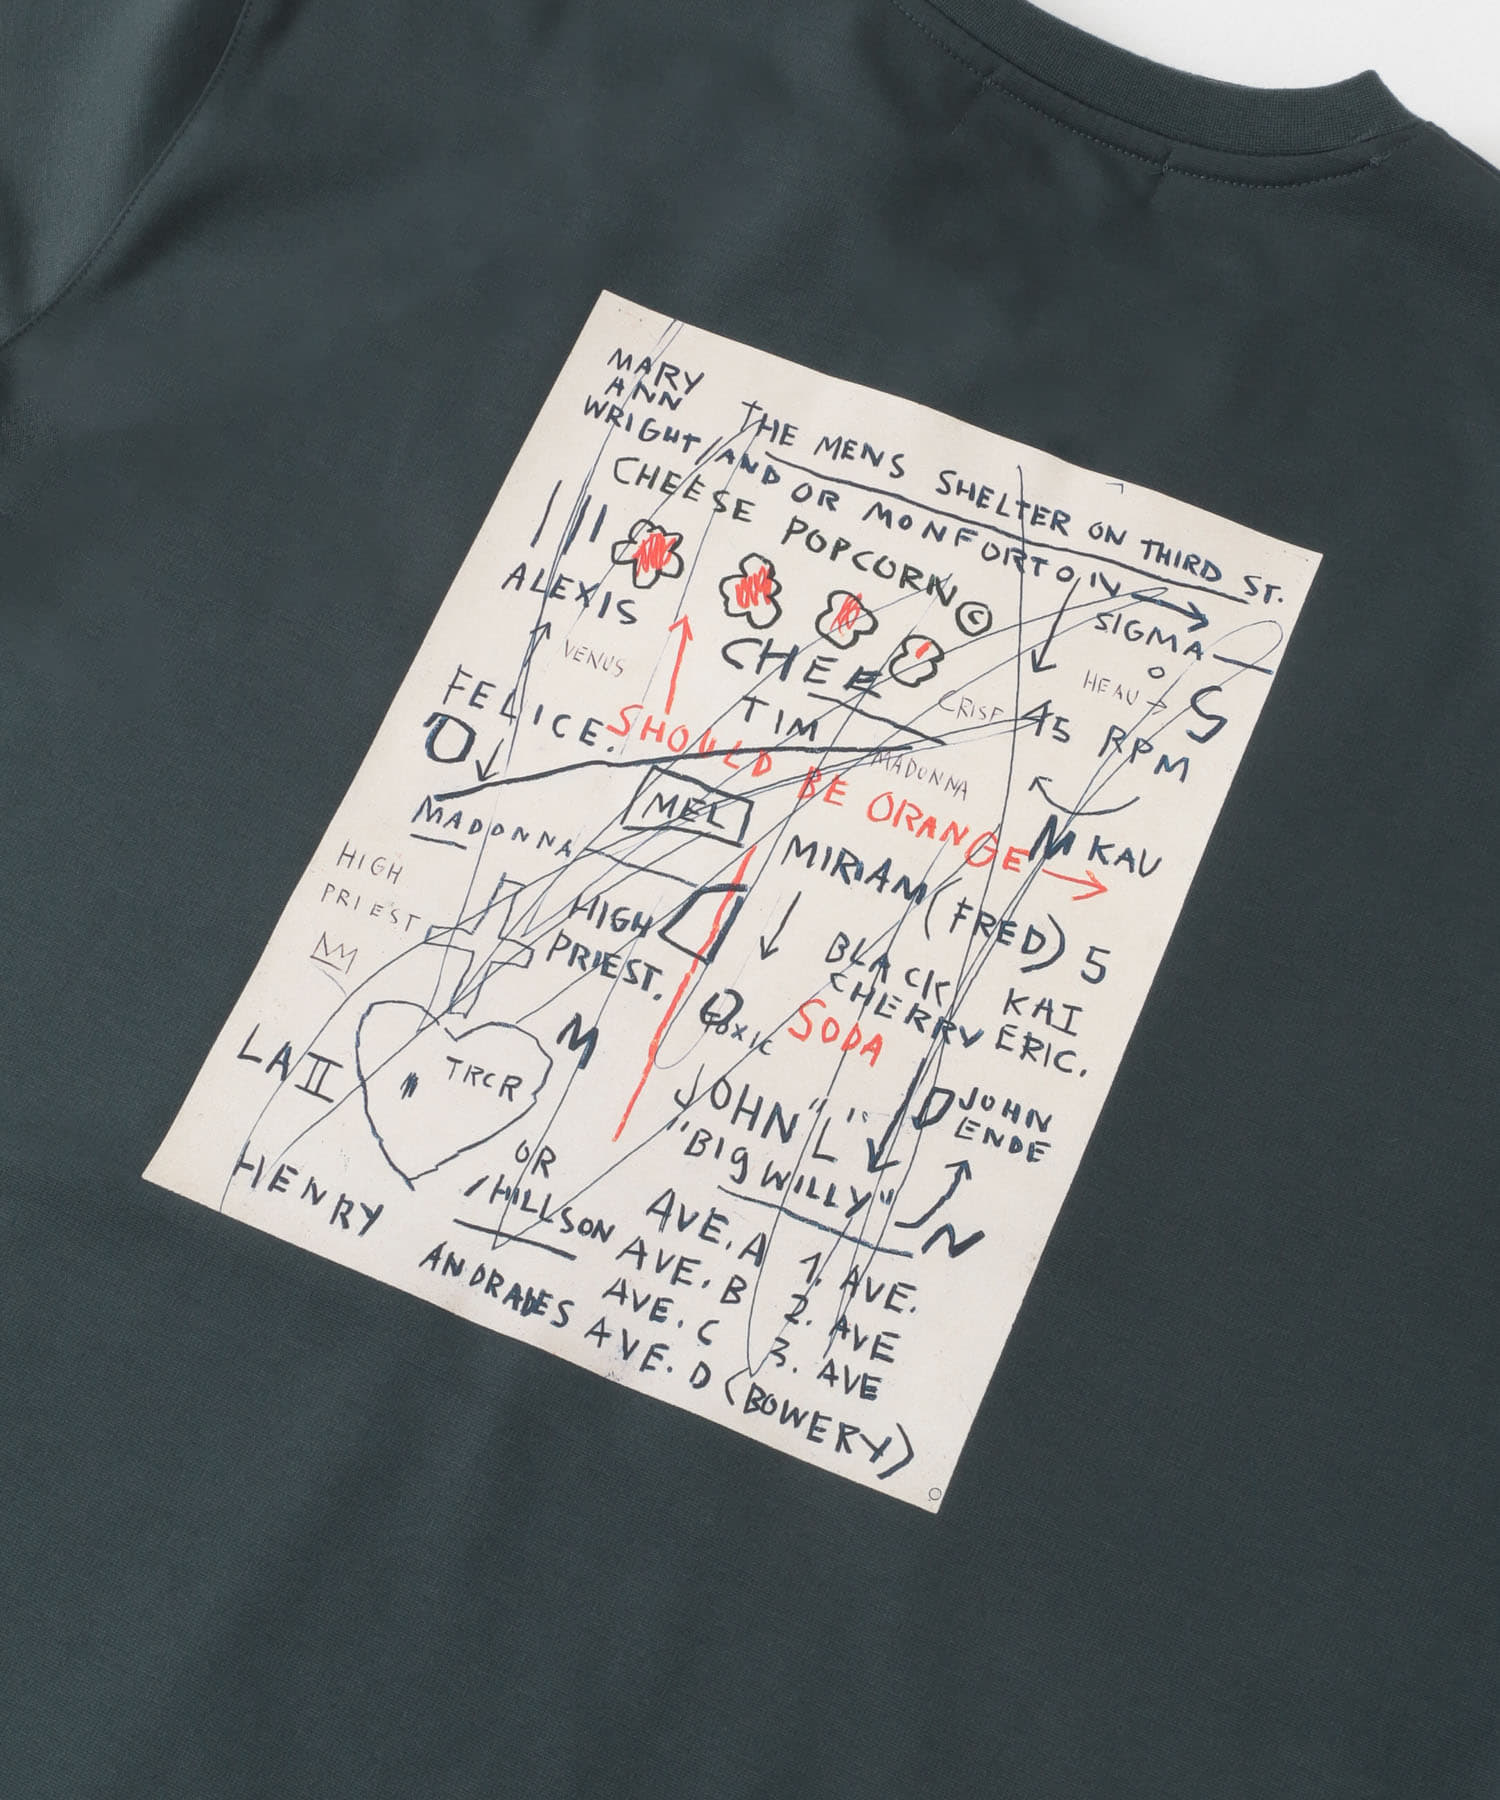 MARY
ANN
WRIGHT/AND OR MONFORTON
THE MENS SHELTER ON THIRD ST.
CHEESE POPCORN©
SIGMA
ALEXIS
VENUS
CHEE
HEAU
S
FELICE.
TIM
CRISP
45 RPM
SHOULD BE ORANGE
MADONNA
O
MEL
M KAU
MADONNA
MIRIAM (FRED) 5
HIGH
PRIEST
HIGH
PRIEST.
BLACK
CHERRY
SODA
KAI
ERIC.
M
TOXIC
LA II
TRCR
JOHN "L"
"BIG WILLY"
JOHN
ENDE
N
HENRY
OR
/HILLSON
ANDRADES
AVE. A
AVE. B
AVE. C
AVE. D (BOWERY)
1. AVE.
2. AVE
3. AVE